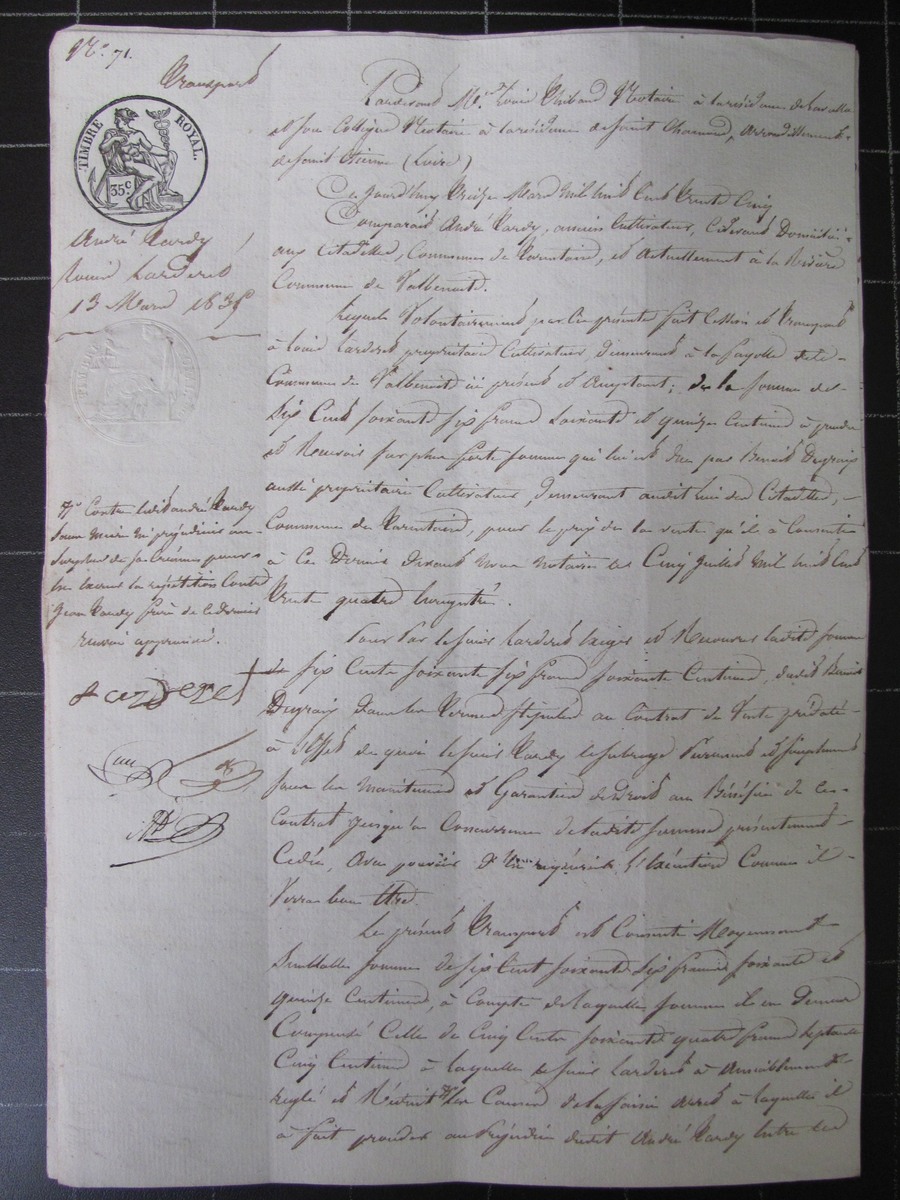 N.° 71.
Transport
TIMBRE ROYAL.
35c.
André Tardy
Louis Larderet
13 Mars 1835
Pardevant M.e Louis Thibaud Notaire à la résidence de Lavalla
et son Collègue Notaire à la résidence de Saint Chamond, arrondissement
de Saint Etienne (Loire)
Ce jourd'huy Treize Mars mil huit Cent Trente Cinq
Comparaît André Tardy, ancien Cultivateur, Cidevant Domicilié
aux Citadelles, Commune de Tarentaise, et actuellement à la Rivière
Commune de Valbenoite.
Lequel Volontairement par Ces présentes fait Cession et Transport
à Louis Larderet propriétaire Cultivateur, demeurant à la fayolle dite
Commune de Valbenoit ici présent et acceptant; de la somme de
Six Cent soixante six francs soixante et quinze Centimes à prendre
et Recevoir sur plus forte somme qui lui est due par Benoit Degrais
aussi propriétaire Cultivateur, demeurant audit lieu des Citadelles,
Commune de Tarentaise, pour le prix de la vente qu'il à Consentie
à Ce Dernier devant nous notaire le Cinq juillet mil huit Cent
Trente quatre Enregistré.
Pour Par le sieur Larderet Exiger et Recouvrer ladite somme
de six Cents soixante six francs soixante Centimes, dudit Benoit
Degrais dans les Termes stipulés au Contrat de Vente prédaté
à l'Effet de quoi le sieur Tardy le subroge Purement et simplement
sans les maintenue et Garantie de Droit au Bénéfice de Ce
Contrat jusqu'à Concurrence de ladite somme présentement
Cédée, avec pouvoir d'en requérir l'Exécution Comme il
Verra bon Etre.
Le présent Transport est Consenti Moyennant
Semblable somme de six Cent soixante six francs soixante et
quinze Centimes, à Compte de laquelle somme il en demeure
Compensé Celle de Cinq Cents soixante quatre francs septante
Cinq Centimes à laquelle le sieur Larderet à amiablement
réglé et Réduit les Causes de la saisie arrêt à laquelle il
à fait procéder au Préjudice dudit André Tardy Entre les
Contre ledit andré Tardy
sans nuire ni préjudicier au
surplus de sa Créance pour
en Exercer la répétition Contre
Jean Tardy frère de Ce dernier
renvoi approuvé.
Larderet